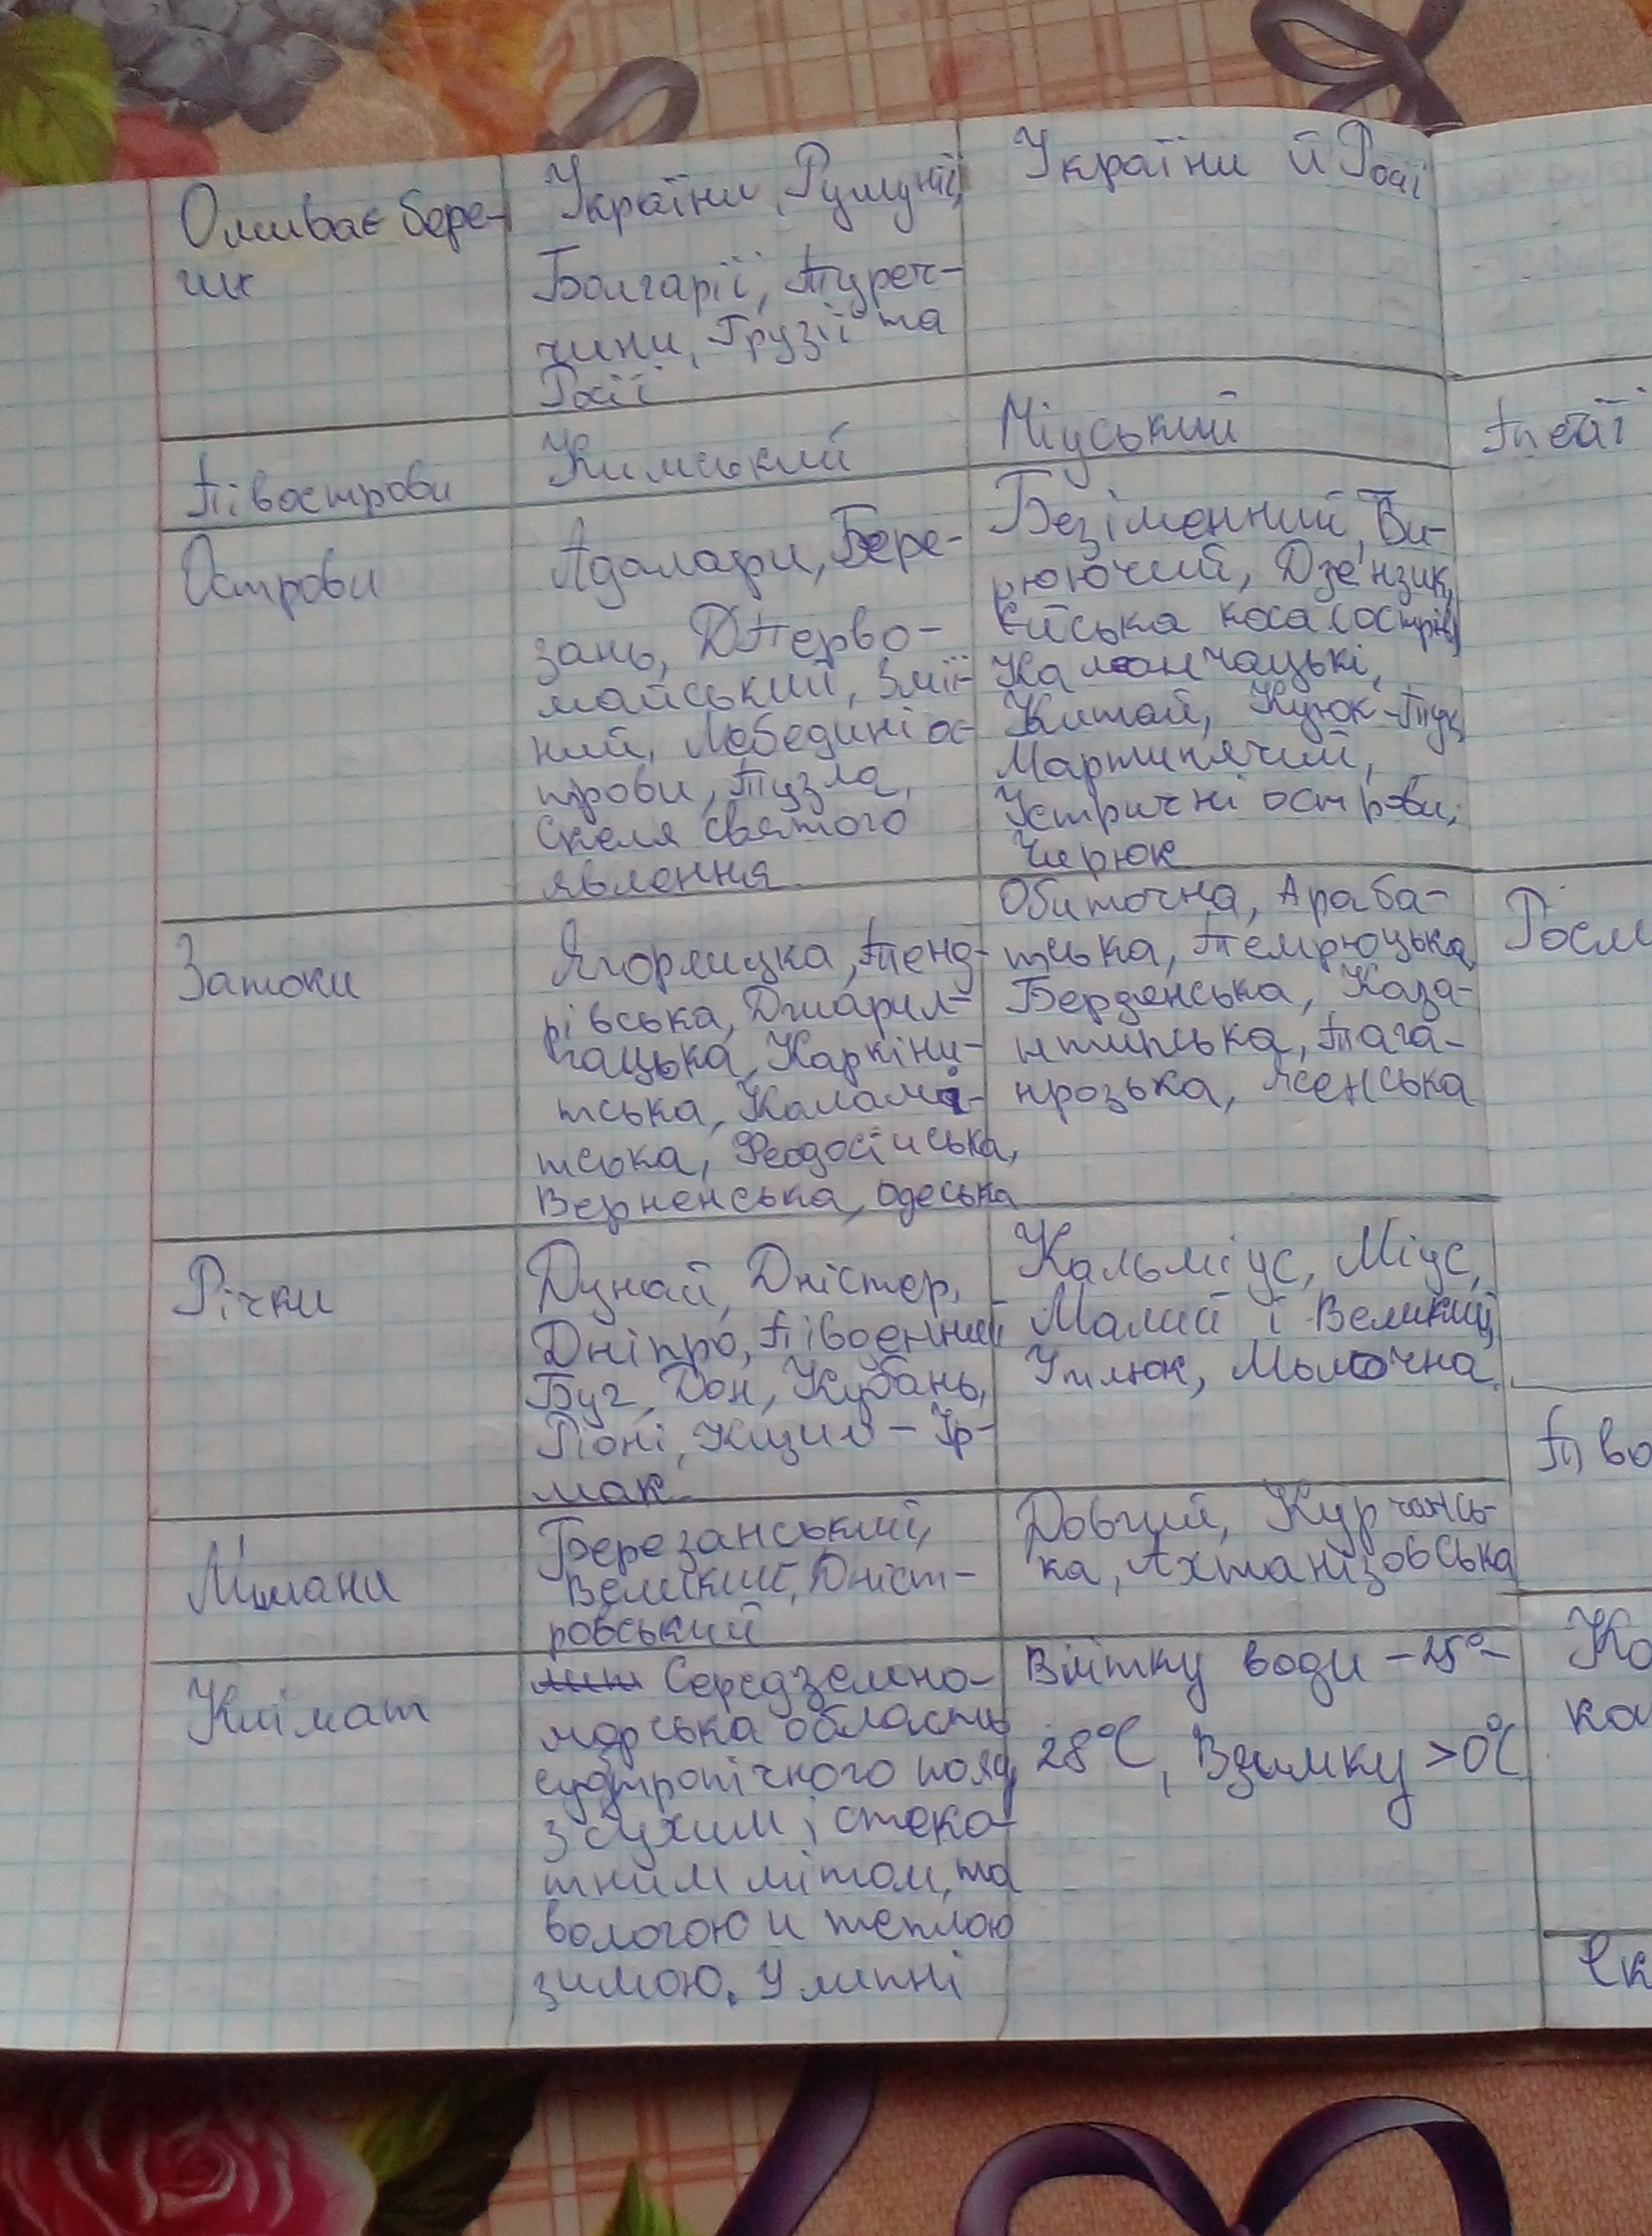 Омиває бере-
ги
України, Румунії,
Болгарії, Туреч-
чини, Грузії та
Росії
України й Росії
Півострови
Кимський
Міуський
Острови
Адалари, Бере-
зань,
майський, Змії-
ний, Лебедині ос-
трови, Тузла,
Скеля святого
явлення.
Безіменний, Би-
рюючий, Дзензик,
Ейська коса (острів)
Каланчацькі,
Китай, Куюк-Тук,
Мартинячий,
Устричні острови,
Чирюк
Затоки
Ягорлицка, Тенд-
рівська, Джарил-
гацька, Каркіни-
тська, Каламі-
тська, Феодосійська,
одеська
Обиточна, Араба-
тська, Темрюцька,
Бердянська, Каза-
нтипська, Тага-
нрозька, Ясенська
Річки
Дунай, Дністер,
Дніпро, Південний
Буг, Дон, Кубань,
Ріоні, Кизил-Ір-
мак.
Кальміус, Міус,
Малий і Великий
Утлюк, Молочна.
Лимани
Березанський,
Великий, Дніст-
ровський
Довгий, Курчансь-
ка, Ахтанізовська
Клімат
Середземно-
морська область
субтропічного пояу
з сухим і спеко-
тним літом, та
вологою и теплою
зимою. У липні
Влітку води - 25°-
28°C, Взимку >0°C
Течії
Росл
Ко
ка
Ек